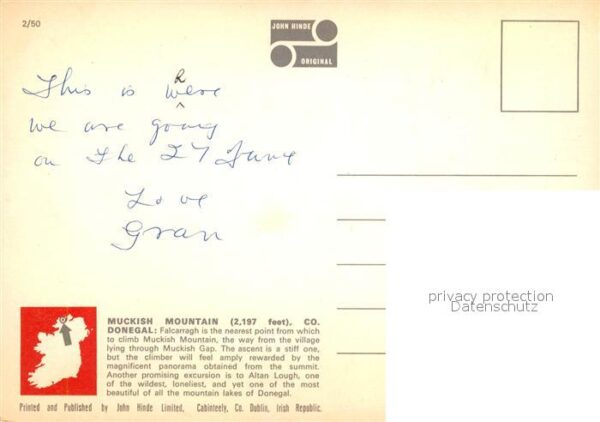 2/50
JOHN HINDE
ORIGINAL
This is Where
we are going
on the 27 June
Love
Gran
privacy protection
Datenschutz
MUCKISH MOUNTAIN (2,197 feet), CO.
DONEGAL: Falcarragh is the nearest point from which
to climb Muckish Mountain, the way from the village
lying through Muckish Gap. The ascent is a stiff one,
but the climber will feel amply rewarded by the
magnificent panorama obtained from the summit.
Another promising excursion is to Altan Lough, one
of the wildest, loneliest, and yet one of the most
beautiful of all the mountain lakes of Donegal.
Printed and Published by John Hinde Limited, Cabinteely, Co. Dublin, Irish Republic.